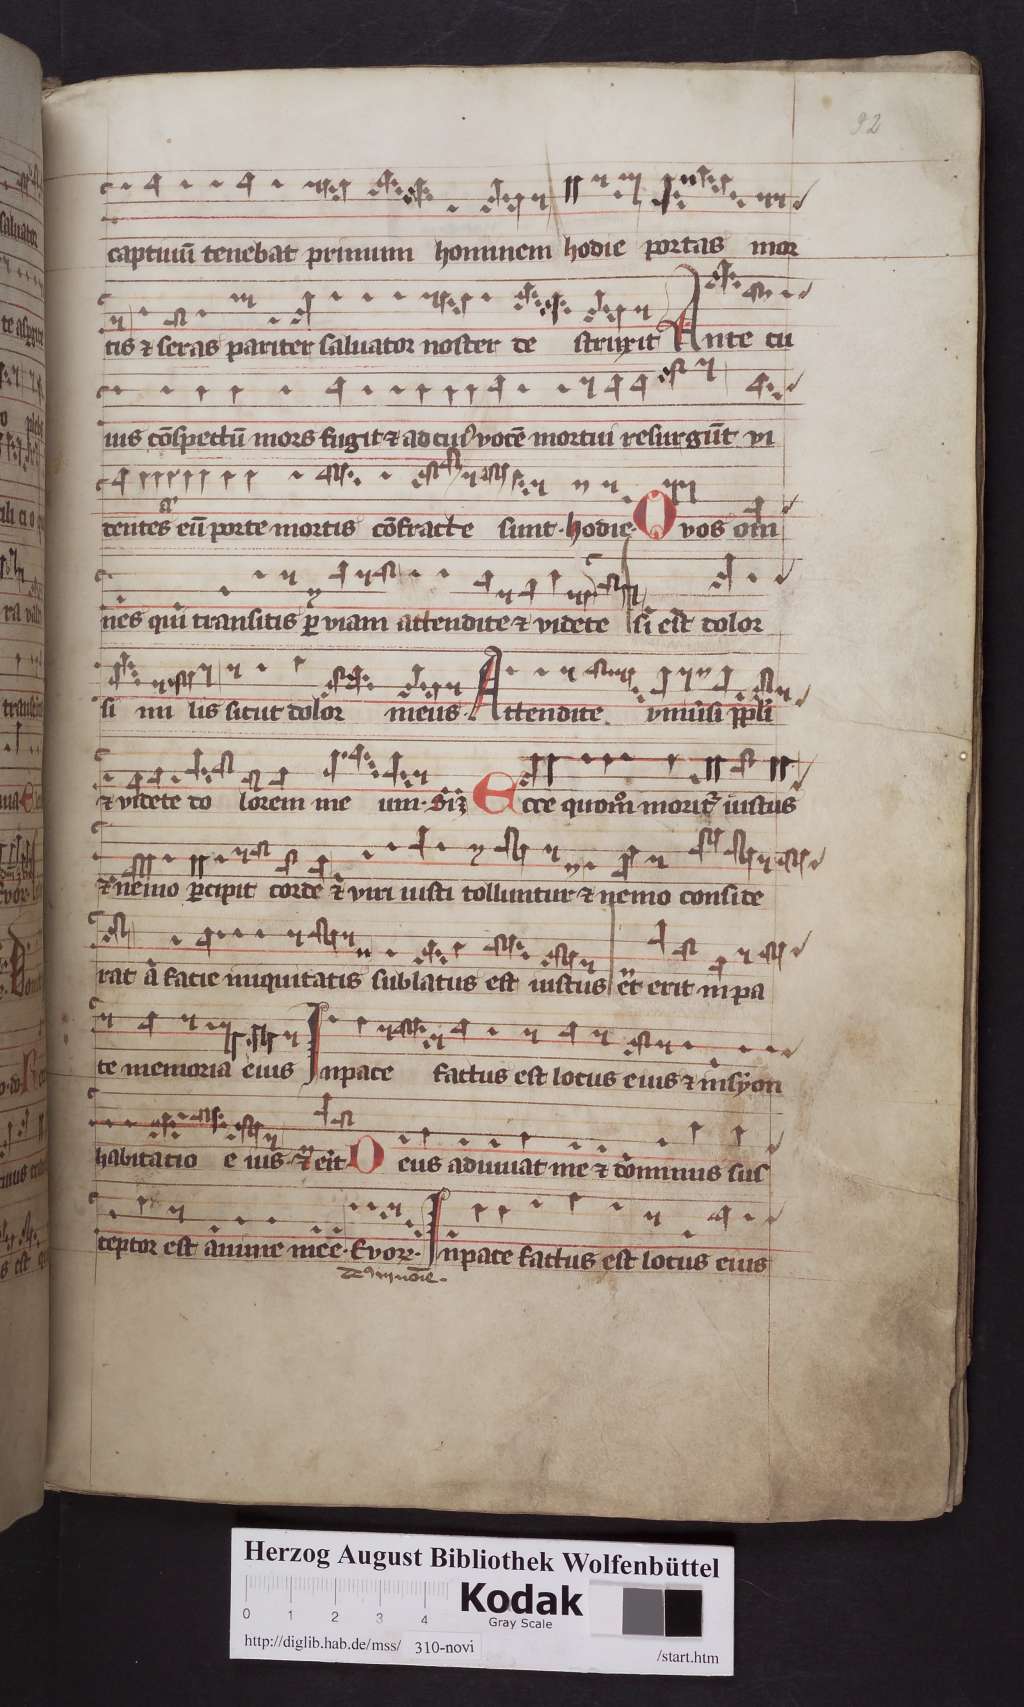 92
captiuū tenebat primum hominem hodie portas mor
tis ⁊ seras pariter saluator noster de struxit Ante cu
ius cōspectū mors fugit ⁊ ad cuiꝰ vocē mortui resurgūt vi
dentes eū porte mortis cōfracte sunt · hodie · O vos om̄
nes qui transitis ꝑ viam attendite ⁊ videte si est dolor
si mi lis sicut dolor meus · Attendite vniūsi ppl̄i
⁊ videte do lorem me um · Ecce quomō moritᷣ iustus
⁊ nemo ꝑcipit corde ⁊ viri iusti tolluntur ⁊ nemo conside
rat a facie iniquitatis sublatus est iustus et erit in pa
ce memoria eius In pace factus est locus eius ⁊ in syon
habitatio e ius · ⁊ erit D eus adiuuat me ⁊ dominus sus
ceptor est anime mee · Evovᷓe · In pace factus est locus eius
Herzog August Bibliothek Wolfenbüttel
0 1 2 3 4
Kodak
Gray Scale
http://diglib.hab.de/mss/ 310-novi /start.htm